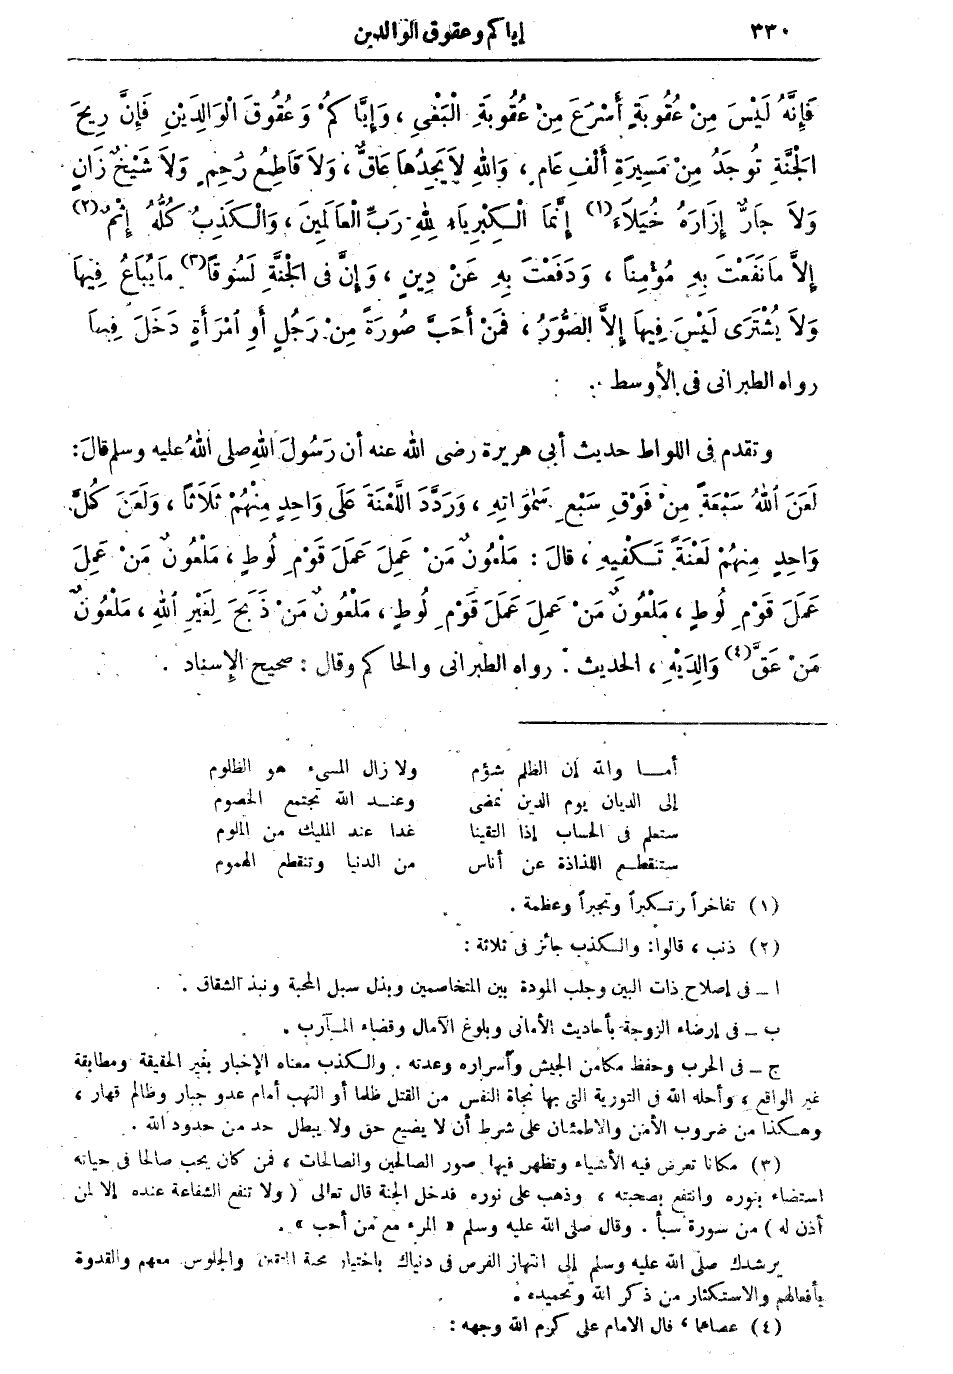 ٣٣٠
إياكم وعقوق الوالدين
فَإِنَّهُ لَيْسَ مِنْ عُقُوبَةٍ أَسْرَعَ مِنْ عُقُوبَةِ الْبَغْىِ ، وَإِيَّاكُمْ وَعُقُوقَ الْوَالِدَيْنِ فَإِنَّ رِيحَ
الْجَنَّةِ تُوجَدُ مِنْ مَسِيرَةِ أَلْفِ عَامٍ ، وَاللهِ لاَ يَجِدُهَا عَاقٌّ ، وَلاَ قَاطِعُ رَحِمٍ وَلاَ شَيْخٌ زَانٍ
وَلاَ جَارٌّ إِزَارَهُ خُيَلاَءَ(١) إِنَّمَا الْكِبْرِيَاءُ لِلهِ رَبِّ الْعَالَمِينَ ، وَالْكَذِبُ كُلُّهُ إِثْمٌ(٢)
إِلاَّ مَا نَفَعْتَ بِهِ مُؤْمِنًا ، وَدَفَعْتَ بِهِ عَنْ دِينٍ ، وَإِنَّ فى الْجَنَّةِ لَسُوقًا(٣) مَا يُبَاعُ فِيهَا
وَلاَ يُشْتَرَى لَيْسَ فِيهَا إِلاَّ الصُّوَرُ ، فَمَنْ أَحَبَّ صُورَةً مِنْ رَجُلٍ أَوِ امْرَأَةٍ دَخَلَ فِيهَا
رواه الطبرانى فى الأوسط .
وتقدم فى اللواط حديث أبى هريرة رضى الله عنه أن رَسُولَ اللهِ صلى اللهُ عليه وسلم قالَ :
لَعَنَ اللهُ سَبْعَةً مِنْ فَوْقِ سَبْعِ سَمٰوَاتِهِ ، وَرَدَّدَ اللَّعْنَةَ عَلَى وَاحِدٍ مِنْهُمْ ثَلَاثًا ، وَلَعَنَ كُلَّ
وَاحِدٍ مِنْهُمْ لَعْنَةً تَكْفِيهِ ، قالَ : مَلْعُونٌ مَنْ عَمِلَ عَمَلَ قَوْمِ لُوطٍ ، مَلْعُونٌ مَنْ عَمِلَ
عَمَلَ قَوْمِ لُوطٍ ، مَلْعُونٌ مَنْ عَمِلَ عَمَلَ قَوْمِ لُوطٍ ، مَلْعُونٌ مَنْ ذَبَحَ لِغَيْرِ اللهِ ، مَلْعُونٌ
مَنْ عَقَّ(٤) وَالِدَيْهِ ، الحديث . رواه الطبرانى والحاكم وقال : صحيح الإسناد .
أمـا والله إن الظلم شؤم ولا زال المسىء هو الظلوم
إلى الديان يوم الدين نمضى وعنـد الله تجتمع الخصوم
ستعلم فى الحساب إذا التقينا غدا عند المليك من الملوم
ستنقطـع اللذاذة عن أناس من الدنيا وتنقطع الهموم
(١) تفاخراً وتكبراً وتجبراً وعظمة .
(٢) ذنب ، قالوا : والكذب جائز فى ثلاثة :
ا ــ فى إصلاح ذات البين وجلب المودة بين المتخاصمين وبذل سبل المحبة ونبذ الشقاق .
ب ــ فى إرضاء الزوجة بأحاديث الأمانى وبلوغ الآمال وقضاء المـآرب .
ج ــ فى الحرب وحفظ مكامن الجيش وأسراره وعدته . والكذب معناه الإخبار بغير الحقيقة ومطابقة
غير الواقع ، وأحله الله فى التورية التى بها نجاة النفس من القتل ظلما أو النهب أمام عدو جبار وظالم قهار ،
وهكذا من ضروب الأمن والاطمئنان على شرط أن لا يضيع حق ولا يبطل حد من حدود الله .
(٣) مكانا تعرض فيه الأشياء وتظهر فيها صور الصالحين والصالحات ، فمن كان يحب صالحا فى حياته
استضاء بنوره وانتفع بصحبته ، وذهب على نوره فدخل الجنة قال تعالى ( ولا تنفع الشفاعة عنده إلا لمن
أذن له ) من سورة سبأ . وقال صلى الله عليه وسلم « المرء مع من أحب » .
يرشدك صلى الله عليه وسلم إلى انتهاز الفرص فى دنياك باختيار محبة المتقين والجلوس معهم والقدوة
بأفعالهم والاستكثار من ذكر الله وتحميده .
(٤) عصاهما ، قال الامام على كرم الله وجهه :